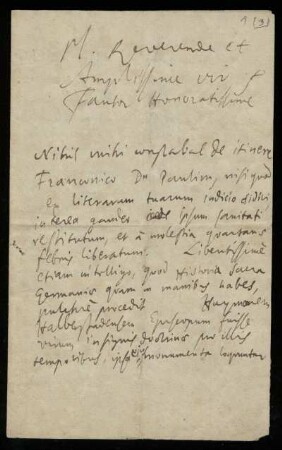 1 (3)
Pl. Reverende et
Amplissime vir
Fautor Honoratissime
Nihil mihi constabat de itinere
Franconico Dn. Paulini, nisi quod
ex literarum tuarum indicio didici
interea gaudeo ipsum sanitati
restitutum, et à molestia quartanae
febris liberatum. Libentissime
etiam intelligo, quod Historia Sacra
Germaniae quam in manibus habes,
pulchre procedit. Haymonem
Halberstadensem Episcopum fuisse
virum insigniter doctum pro illis
temporibus, ipsa ejus monumenta loquuntur